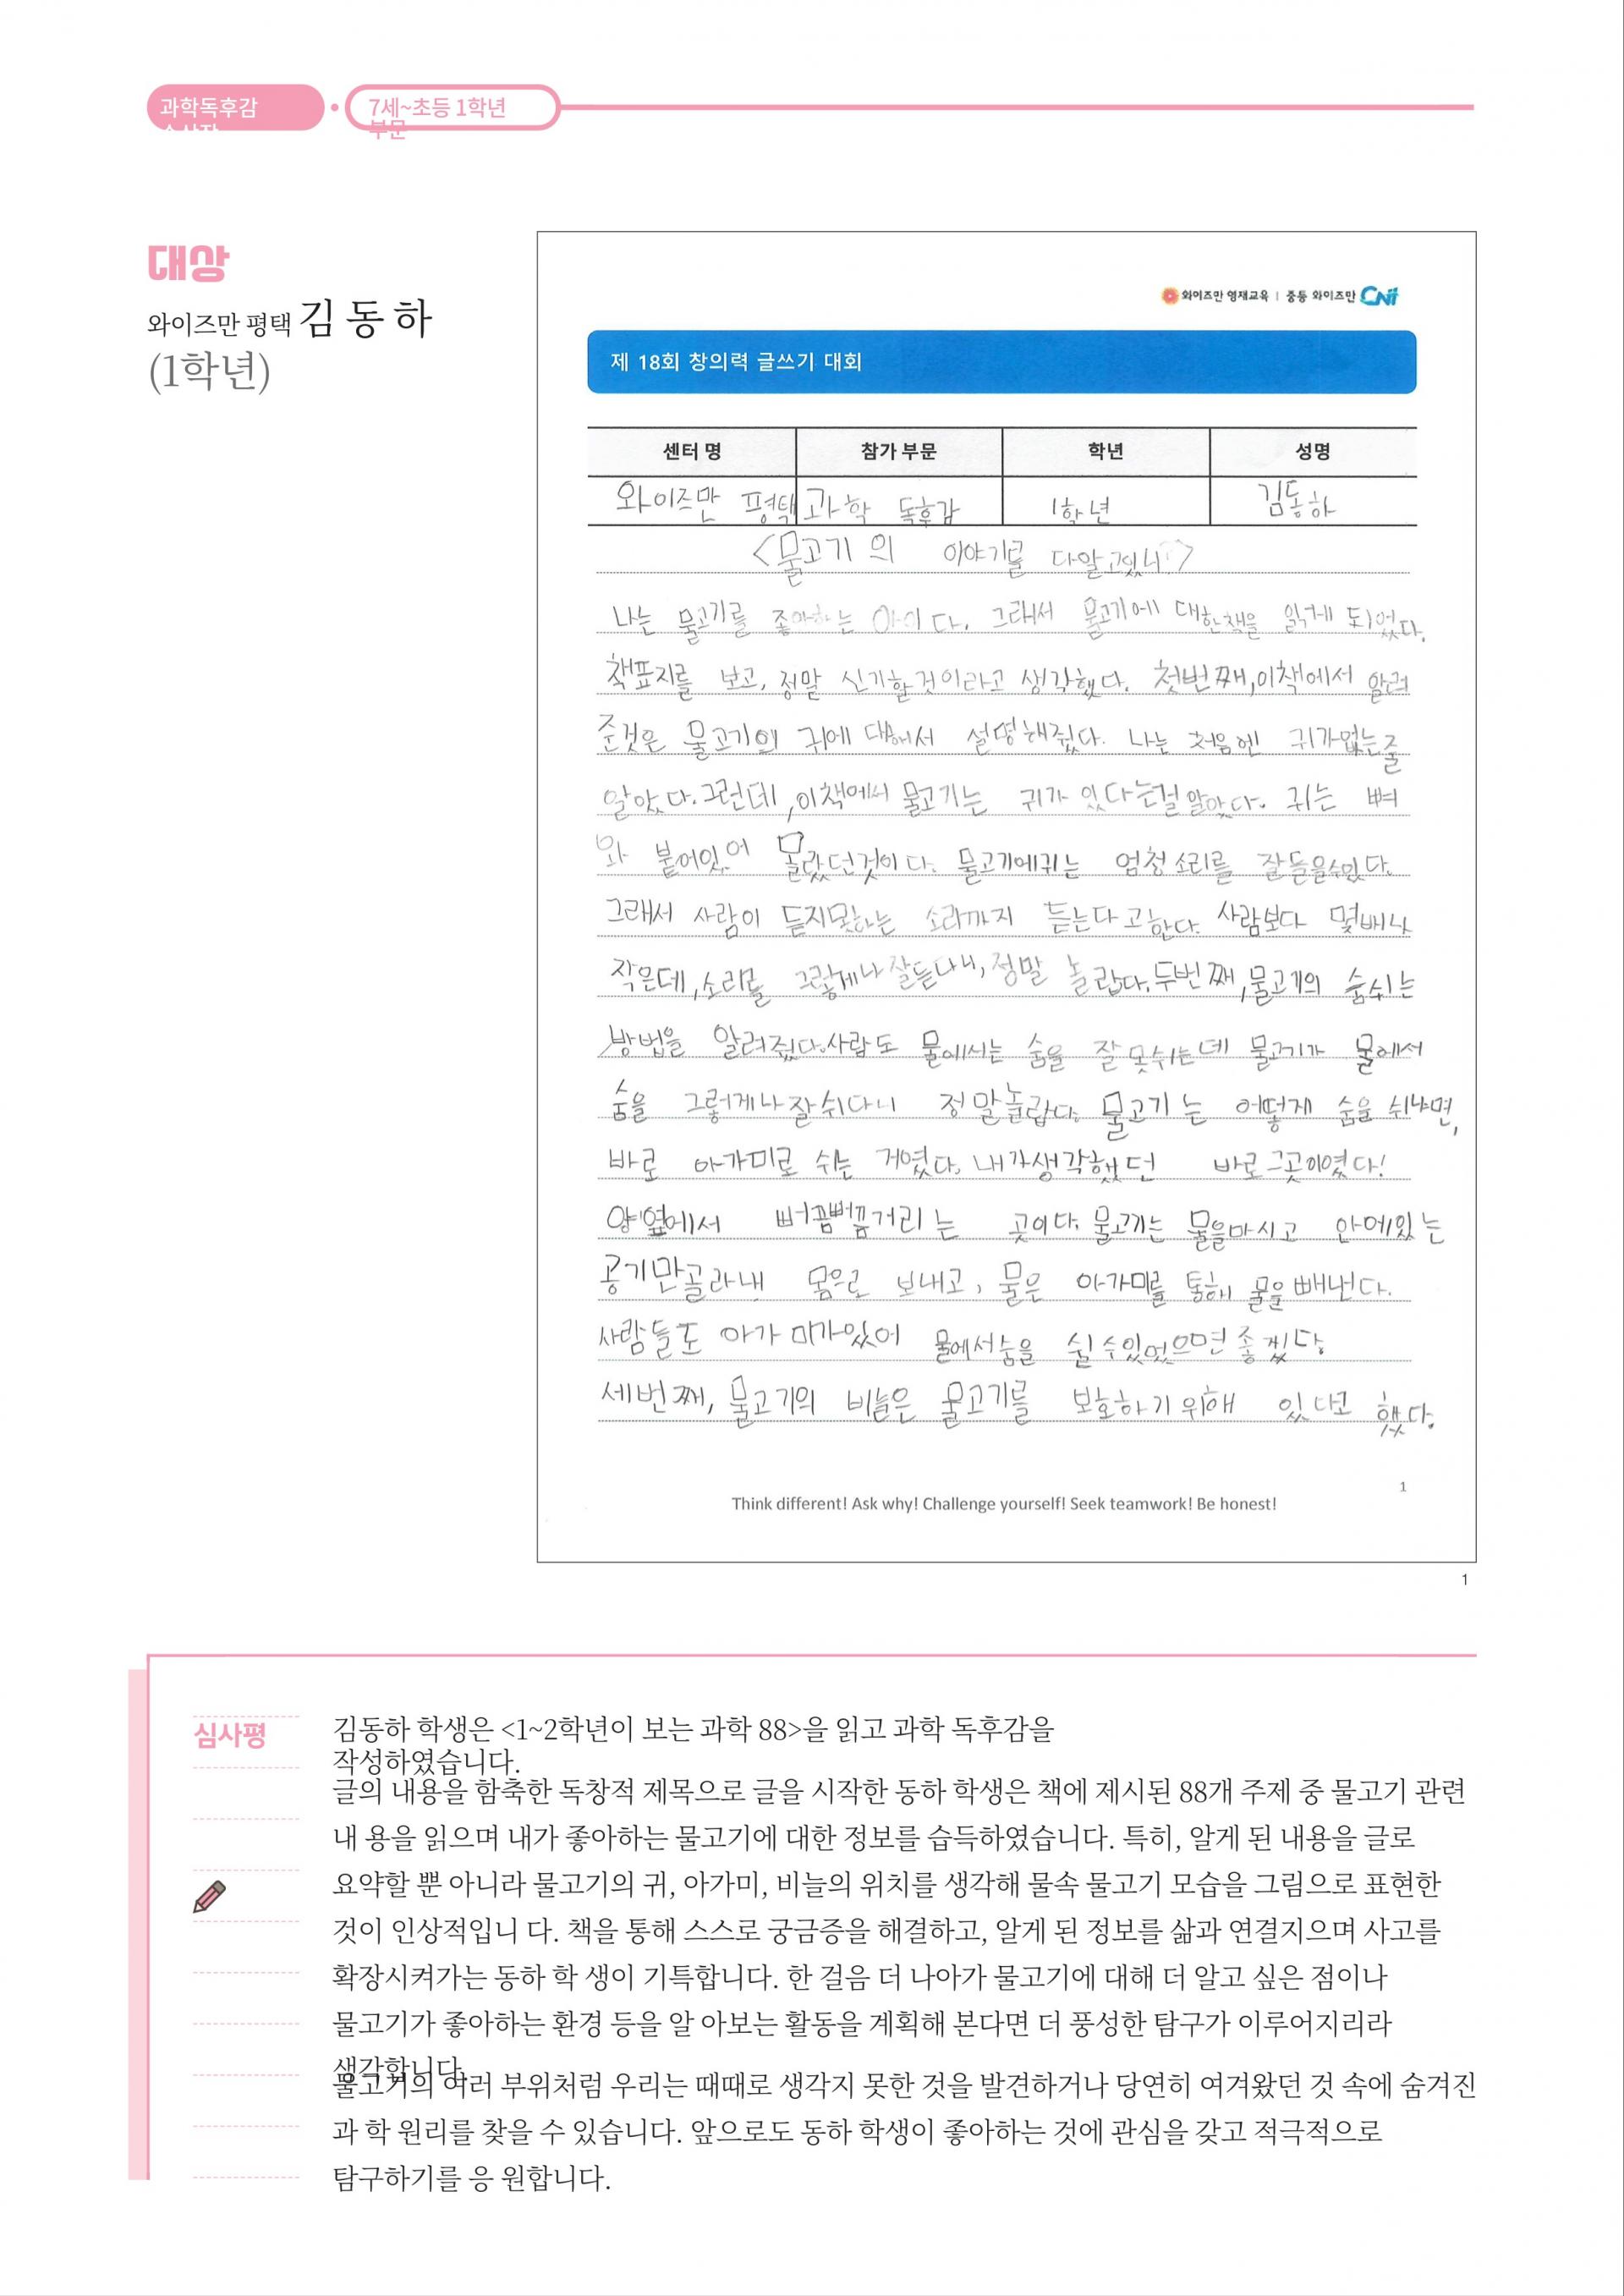 과학독후감
수상작
7세~초등 1학년
부문
대상
와이즈만 평택 김동하
(1학년)
와이즈만 영재교육 | 중등 와이즈만 CNI
제 18회 창의력 글쓰기 대회
센터 명 참가 부문 학년 성명
와이즈만 평택 과학 독후감 1학년 김동하
<물고기의 이야기를 다알고있니?>
나는 물고기를 좋아하는 아이다. 그래서 물고기에 대한책을 읽게 되었다.
책표지를 보고, 정말 신기할것이라고 생각했다. 첫번째,이책에서 알려
준것은 물고기의 귀에 대해서 설명해줬다. 나는 처음엔 귀가없는줄
알았다.그런데,이책에서 물고기는 귀가 있다는걸알았다. 귀는 뼈
와 붙어있어 몰랐던것이다. 물고기에귀는 엄청소리를 잘들을수있다.
그래서 사람이 듣지못하는 소리까지 듣는다고한다. 사람보다 몇배나
작은데,소리를 그렇게나잘듣다니,정말 놀랍다.두번째,물고기의 숨쉬는
방법을 알려줬다.사람도 물에서는 숨을 잘못쉬는데 물고기가 물에서
숨을 그렇게나잘쉬다니 정말놀랍다. 물고기는 어떻게 숨을 쉬냐면,
바로 아가미로 쉬는 거였다. 내가생각했던 바로그곳이였다!
양옆에서 뻐끔뻐끔거리는 곳이다. 물고기는 물을마시고 안에있는
공기만골라내 몸으로 보내고, 물은 아가미를 통해 물을빼낸다.
사람들도 아가미가있어 물에서숨을 쉴수있었으면좋겠다.
세번째, 물고기의 비늘은 물고기를 보호하기위해 있다고 했다.
1
Think different! Ask why! Challenge yourself! Seek teamwork! Be honest!
1
심사평
김동하 학생은 <1~2학년이 보는 과학 88>을 읽고 과학 독후감을
작성하였습니다.
글의 내용을 함축한 독창적 제목으로 글을 시작한 동하 학생은 책에 제시된 88개 주제 중 물고기 관련
내 용을 읽으며 내가 좋아하는 물고기에 대한 정보를 습득하였습니다. 특히, 알게 된 내용을 글로
요약할 뿐 아니라 물고기의 귀, 아가미, 비늘의 위치를 생각해 물속 물고기 모습을 그림으로 표현한
것이 인상적입니 다. 책을 통해 스스로 궁금증을 해결하고, 알게 된 정보를 삶과 연결지으며 사고를
확장시켜가는 동하 학 생이 기특합니다. 한 걸음 더 나아가 물고기에 대해 더 알고 싶은 점이나
물고기가 좋아하는 환경 등을 알 아보는 활동을 계획해 본다면 더 풍성한 탐구가 이루어지리라
생각합니다.
물고기의 여러 부위처럼 우리는 때때로 생각지 못한 것을 발견하거나 당연히 여겨왔던 것 속에 숨겨진
과 학 원리를 찾을 수 있습니다. 앞으로도 동하 학생이 좋아하는 것에 관심을 갖고 적극적으로
탐구하기를 응 원합니다.